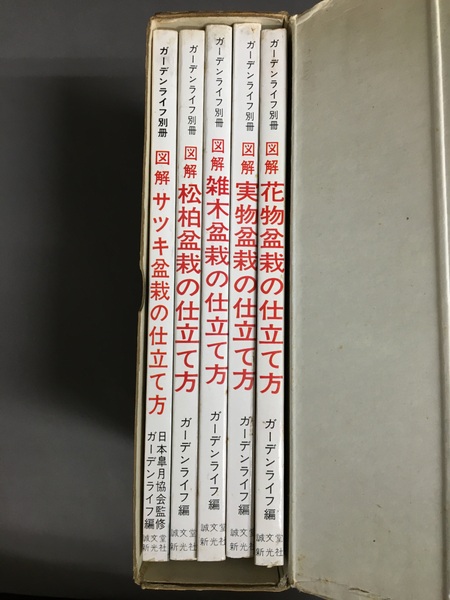 ガーデンライフ別冊
図解 サツキ盆栽の仕立て方
日本皐月協会監修
ガーデンライフ編
誠文堂
新光社
ガーデンライフ別冊
図解 松柏盆栽の仕立て方
ガーデンライフ編
誠文堂
新光社
ガーデンライフ別冊
図解 雑木盆栽の仕立て方
ガーデンライフ編
誠文堂
新光社
ガーデンライフ別冊
図解 実物盆栽の仕立て方
ガーデンライフ編
誠文堂
新光社
ガーデンライフ別冊
図解 花物盆栽の仕立て方
ガーデンライフ編
誠文堂
新光社